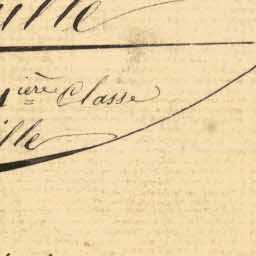 ille
1ière Classe
ille